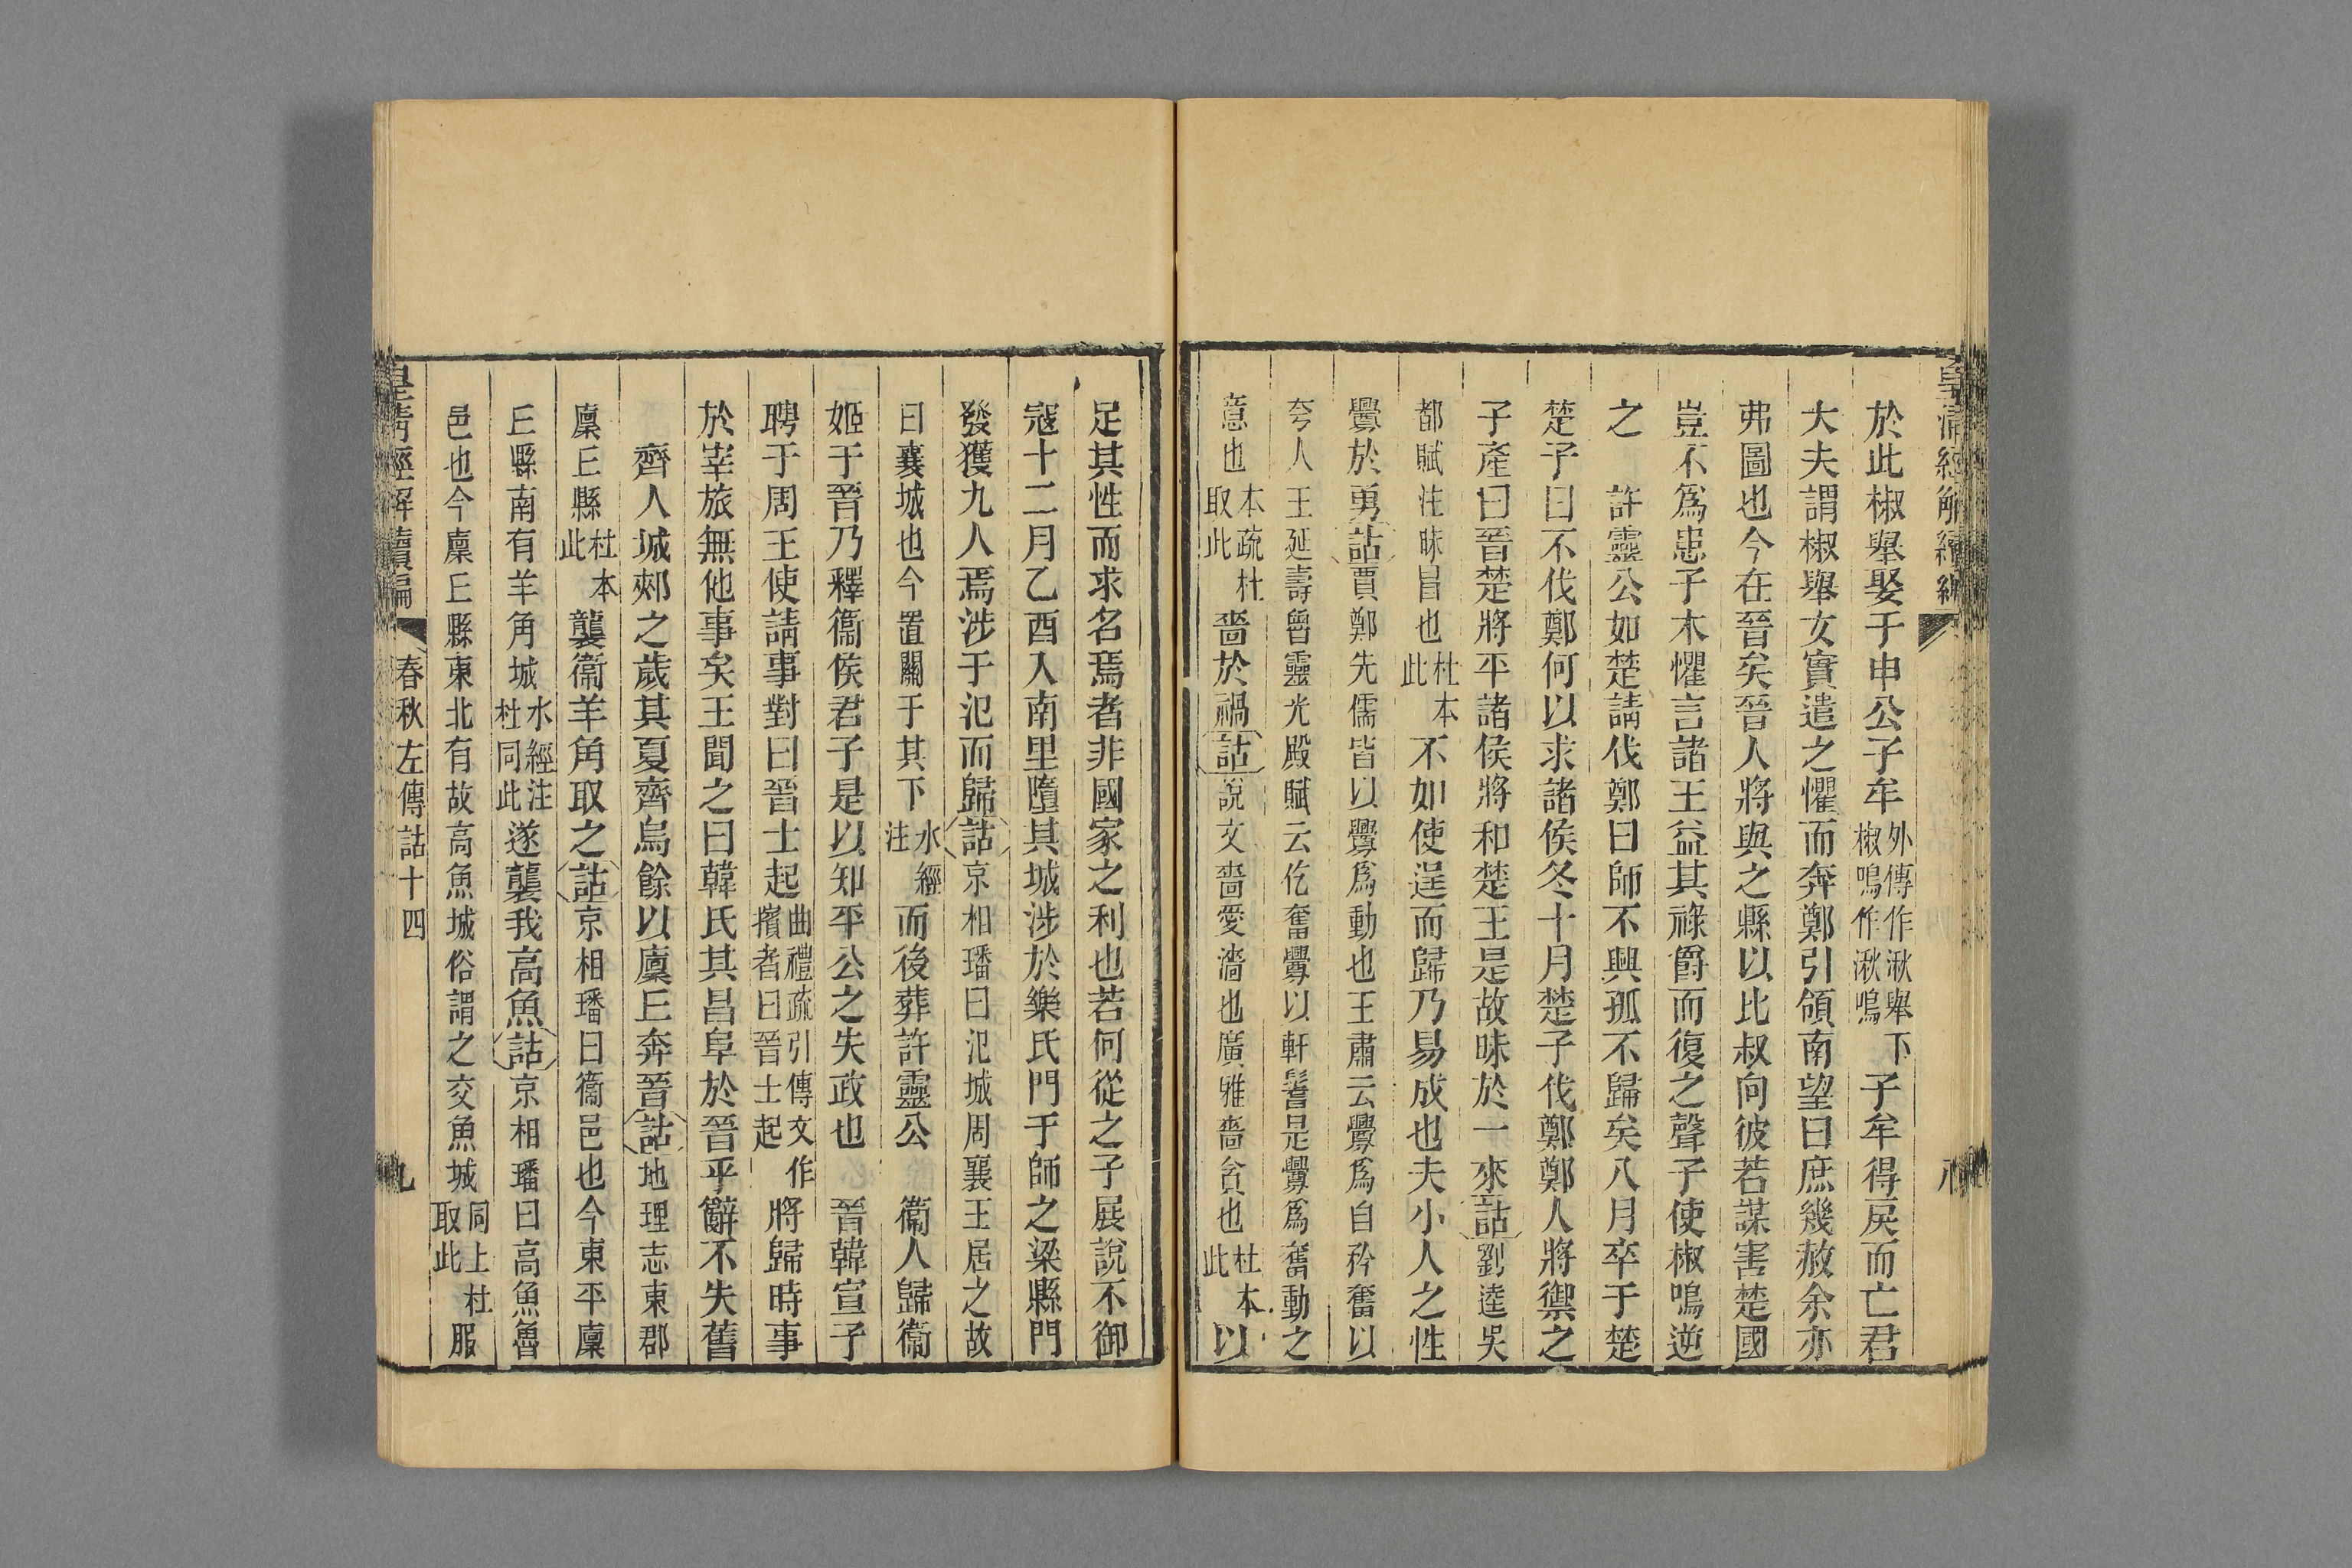 皇清經解續編
於此椒舉娶于申公子牟外傳作湫舉下椒鳴作湫鳴子牟得戾而亡君
大夫謂椒舉女實遣之懼而奔鄭引領南望曰庶幾赦余亦
弗圖也今在晉矣晉人將與之縣以比叔向彼若謀害楚國
豈不爲患子木懼言諸王益其祿爵而復之聲子使椒鳴逆
之　許靈公如楚請伐鄭曰師不興孤不歸矣八月卒于楚
楚子曰不伐鄭何以求諸侯冬十月楚子伐鄭鄭人將禦之
子產曰晉楚將平諸侯將和楚王是故昧於一來詁劉逵吳
都賦注昧冒也杜本此不如使逞而歸乃易成也夫小人之性
釁於勇詁賈鄭先儒皆以釁爲動也王肅云釁爲自矜奮以
夸人王延壽魯靈光殿賦云仡奮釁以軒鬐是釁爲奮動之
意也本疏杜取此嗇於禍詁說文嗇愛濇也廣雅嗇貪也杜本此以
足其性而求名焉者非國家之利也若何從之子展說不御
寇十二月乙酉入南里墮其城涉於樂氏門于師之梁縣門
發獲九人焉涉于氾而歸詁京相璠曰氾城周襄王居之故
曰襄城也今置關于其下水經注而後葬許靈公　衞人歸衞
姬于晉乃釋衞侯君子是以知平公之失政也　晉韓宣子
聘于周王使請事對曰晉士起曲禮疏引傳文作擯者曰晉士起將歸時事
於宰旅無他事矣王聞之曰韓氏其昌阜於晉乎辭不失舊
齊人城郟之歲其夏齊烏餘以廩丘奔晉詁地理志東郡
廩丘縣杜本此襲衞羊角取之詁京相璠曰衞邑也今東平廩
丘縣南有羊角城水經注杜同此遂襲我高魚詁京相璠曰高魚魯
邑也今廩丘縣東北有故高魚城俗謂之交魚城同上杜取此服
皇清經解續編　春秋左傳詁十四　九